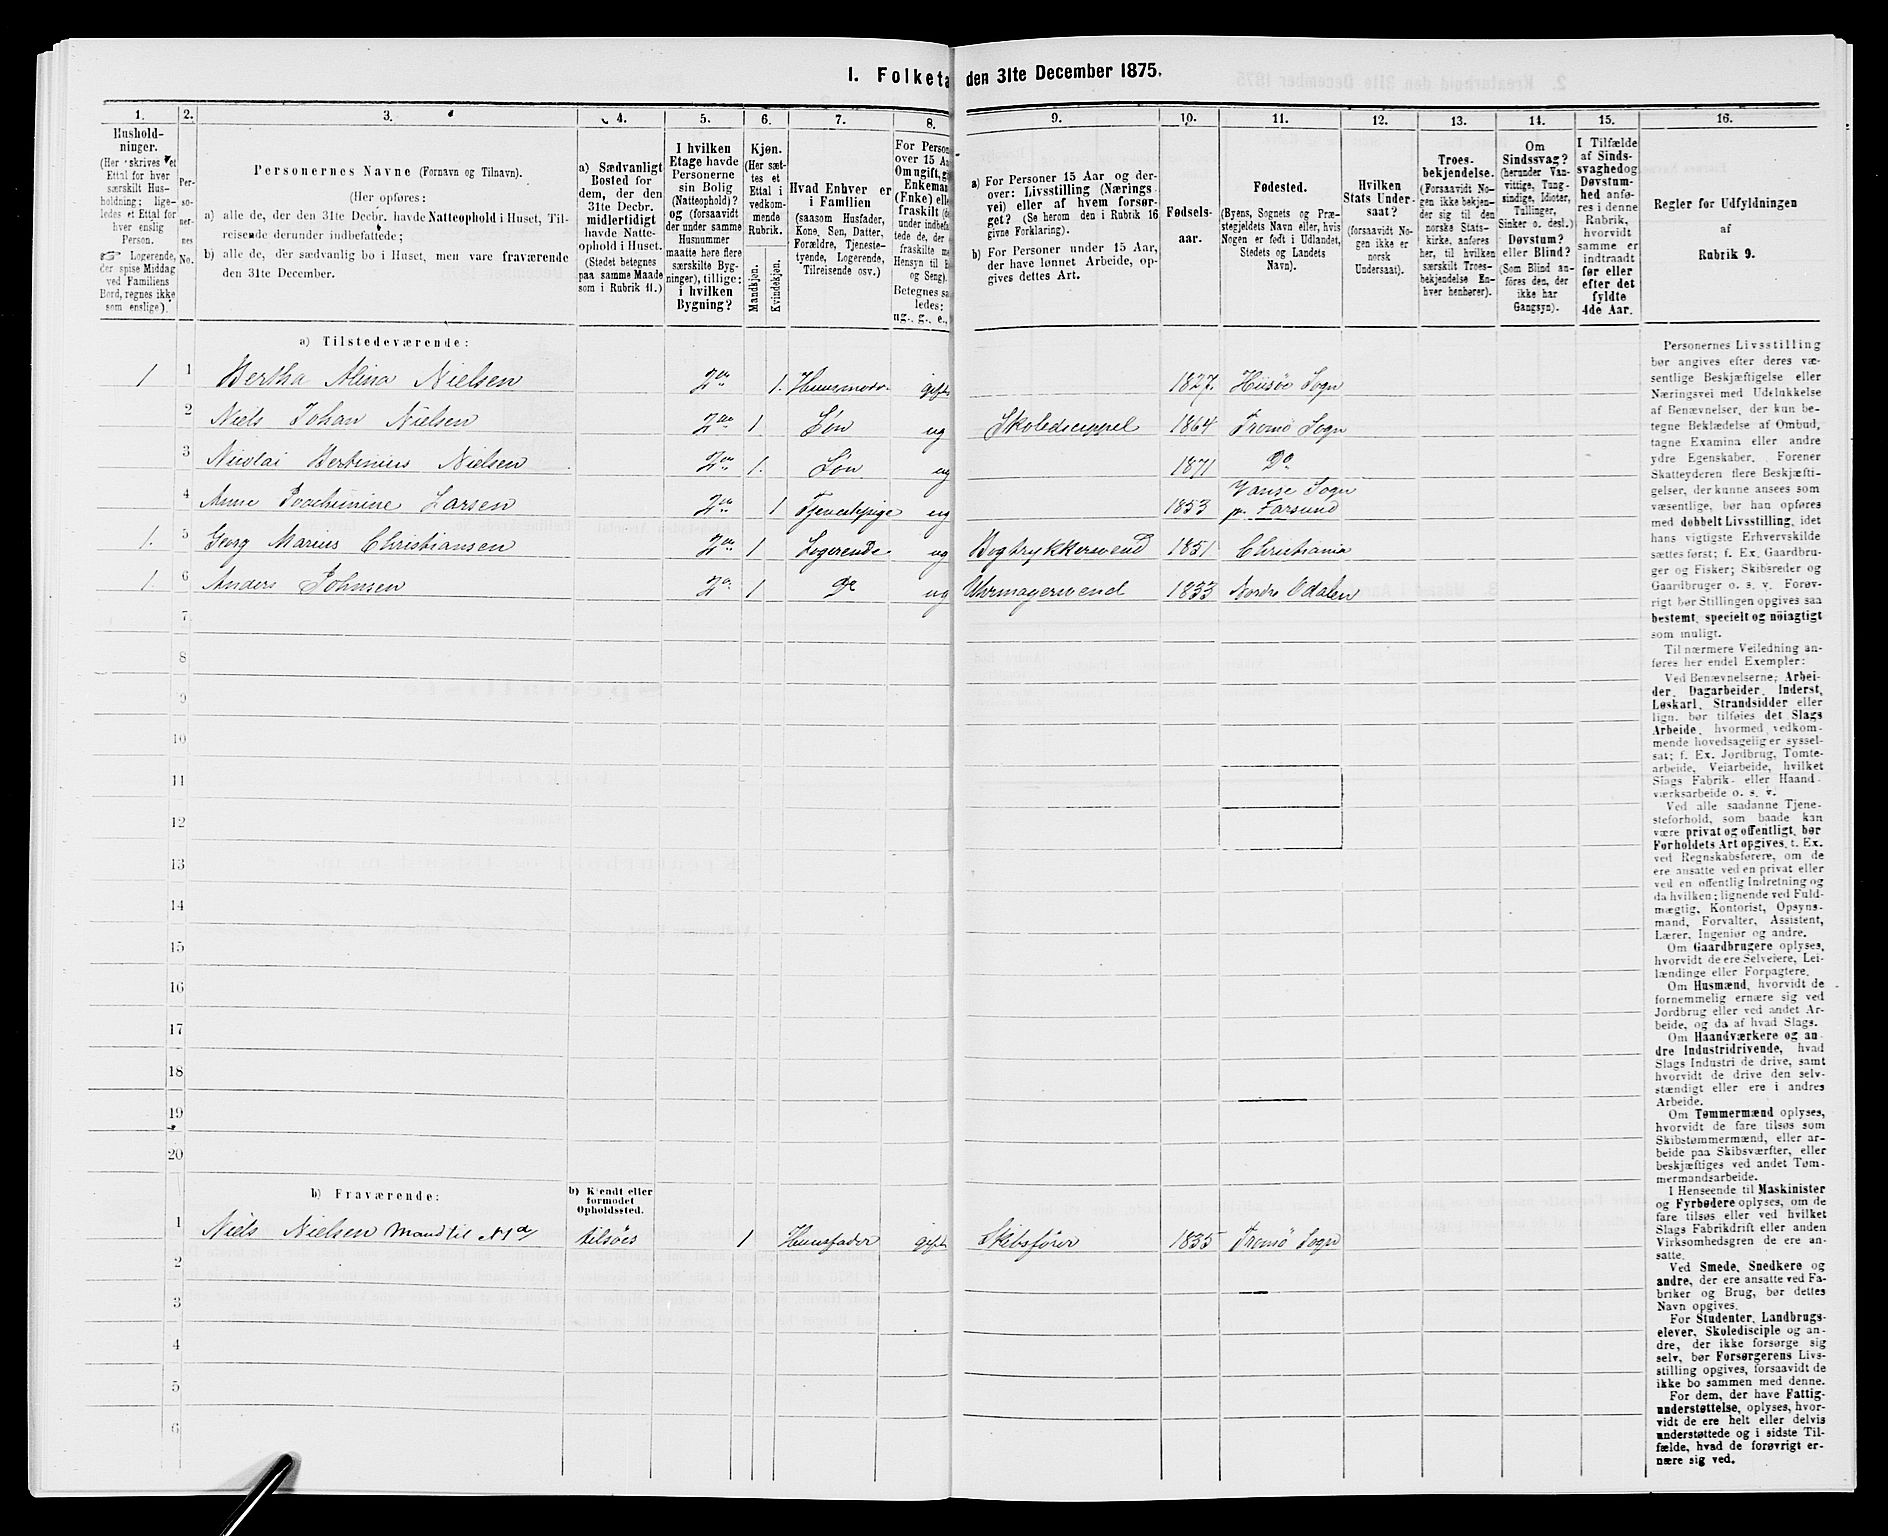 1. Folketa den 31te December 1875.
1. 2. 3. 4. 5. 6. 7. 8. 9. 10. 11. 12. 13. 14. 15. 16.
Hushold-
ninger.
(Her skrives et
Ettal for hver
særskilt Hus-
holdning; lige-
ledes et Ettal for
hver enslig
Person.
☞ Logerende,
der spise Middag
ved Familiens
Bord, regnes ikke
som enslige).
Per-
so-
ner-
nes
No.
Personernes Navne (Fornavn og Tilnavn).
(Her opføres:
a) alle de, der den 31te Decbr. havde Natteophold i Huset, Til-
reisende derunder indbefattede;
b) alle de, der sædvanlig bo i Huset, men vare fraværende
den 31te December.
a) Sædvanligt
Bosted for
dem, der den
31te Decbr.
midlertidigt
havde Natte-
ophold i Huset.
(Stedet betegnes
paa samme Maade
som i Rubrik 11.)
I hvilken
Etage havde
Personerne
sin Bolig
(Natteophold)?
og (forsaavidt
der under samme
Husnummer
maatte høre flere
særskilte Byg-
ninger), tillige:
i hvilken
Bygning?
Kjøn.
(Her sæt-
tes et
Ettal i
vedkom-
mende
Rubrik.
Mandkjøn.
Kvindekjøn.
Hvad Enhver er
i Familien
(saasom Husfader,
Kone, Søn, Datter,
Forældre, Tjeneste-
tyende, Logerende,
Tilreisende osv.)
For Person
over 15 Aa
Om ugift, gi
Enkeman
(Enke) eller
fraskilt (d
under indbef
tede de, der e
fraskilte me
Hensyn til B
og Seng).
Betegnes sa
ledes:
ug., g., e.,
a) For Personer 15 Aar og der-
over: Livsstilling (Nærings
vei) eller af hvem forsør-
get? (Se herom den i Rubrik 16
givne Forklaring).
b) For Personer under 15 Aar,
der have lønnet Arbeide, op-
gives dettes Art.
Fødsels-
aar.
Fødested.
(Byens, Sognets og Præ-
stegjeldets Navn eller, hvis
Nogen er født i Udlandet,
Stedets og Landets
Navn).
Hvilken
Stats Under-
saat?
(forsaavidt No-
gen ikke er
norsk
Undersaat).
Troes-
bekjendelse.
(Forsaavidt No-
gen ikke bekjen-
der sig til den
norske Stats-
kirke, anføres
her, til hvilken
særskilt Troes-
bekjendelse En-
hver henhører).
Om
Sindssvag?
(herunder Van-
vittige, Tung-
sindige, Idioter,
Tullinger,
Sinker o. desl.)
Døvstum?
eller Blind?
(Som Blind an-
føres den, der
ikke har
Gangsyn).
I Tilfælde
af Sinds-
svaghed og
Døvstum-
hed anfø-
res i denne
Rubrik,
hvorvidt
samme er
indtraadt
før eller
efter det
fyldte
4de Aar.
Regler for Udfyldningen
af
Rubrik 9.
a) Tilstedeværende:
1 1 Bertha Alina Nielsen 1. Huusmoder gift 1827. Hiisøe Sogn
2 Niels Johan Nielsen 1 Søn ug Skoledscippel 1864 Tromø Sogn
3 Nicolai Bertinius Nielsen 1. Søn ug 1871 Do
4 Anne Joachimine Larsen 1 Tjenestepige ug 1853 Vanse Sogn
pr. Farsund
1. 5 Georg Marius Christiansen 1 Logerende ug Bogtrykkersvend 1851 Christiania
1. 6 Anders Johnsen 1 Do ug Uhrmagersvend 1833 Nordre Odalen
7
8
9
10
11
12
13
14
15
16
17
18
19
20
b) Fraværende:
b) Kjendt eller
formodet
Opholdssted.
1 Niels Nielsen Mand til No 1 tilsøes 1 Huusfader gift Skibsfører 1835 Tromø Sogn
2
3
4
5
6
Personernes Livsstilling
bør angives efter deres væ-
sentlige Beskjæftigelse eller
Næringsvei med Udelukkelse
af Benævnelser, der kun be-
tegne Beklædelse af Ombud,
tagne Examina eller andre
ydre Egenskaber. Forener
Skatteyderen flere Beskjæfti-
gelser, der kunne ansees som
væsentlige, bør han opføres
med dobbelt Livsstilling, idet
hans vigtigste Erhvervskilde
sættes først; f. Ex. Gaardbru-
ger og Fisker; Skibsreder og
Gaardbruger o. s. v. Forøv-
rigt bør Stillingen opgives saa
bestemt, specielt og nöiagtigt
som muligt.
Til nærmere Veiledning an-
føres her endel Exempler:
Ved Benævnelserne: Arbei-
der, Dagarbeider, Inderst,
Løskarl, Strandsidder eller
lign. bør tilføies det Slags
Arbeide, hvormed vedkom-
mende hovedsagelig er syssel-
sat; f. Ex. Jordbrug, Tomte-
arbeide, Veiarbeide, hvilket
Slags Fabrik- eller Haand-
værksarbeide o. s. v.
Ved alle saadanne Tjene-
steforhold, som baade kan
være privat og offentligt, bør
Forholdets Art opgives, f. Ex.
ved Regnskabsførere, om de
ere ansatte ved en privat eller
ved en offentlig Indretning og
da hvilken; lignende ved Fuld-
mægtig, Kontorist, Opsyns-
mand, Forvalter, Assistent,
Lærer, Ingeniør og andre.
Om Gaardbrugere oplyses,
hvorvidt de ere Selveiere, Lei-
lændinge eller Forpagtere.
Om Husmænd, hvorvidt de
fornemmelig ernære sig ved
Jordbrug eller ved andet Ar-
beide, og da af hvad Slags.
Om Haandværkere og an-
dre Industridrivende, hvad
Slags Industri de drive, samt
hvorvidt de drive den selv-
stændigt eller ere i andres
Arbeide.
Om Tømmermænd oplyses,
hvorvidt de fare tilsøs som
Skibstømmermænd, eller ar-
beide paa Skibsværfter, eller
beskjæftiges ved andet Tøm-
mermandsarbeide.
I Henseende til Maskinister
og Fyrbødere oplyses, om de
fare tilsøs eller ved hvilket
Slags Fabrikdrift eller anden
Virksomhedsgren de ere an-
satte.
Ved Smede, Snedkere og
andre, der ere ansatte ved Fa-
briker og Brug, bør dettes
Navn opgives.
For Studenter, Landbrugs-
elever, Skoledisciple og an-
dre, der ikke forsørge sig
selv, bør Forsørgerens Livs-
stilling opgives, forsaavidt de
ikke bo sammen med denne.
For dem, der have Fattig-
understøttelse, oplyses, hvor-
vidt de ere helt eller delvis
understøttede og i sidste Til-
fælde, hvad de forøvrigt er-
nære sig ved.